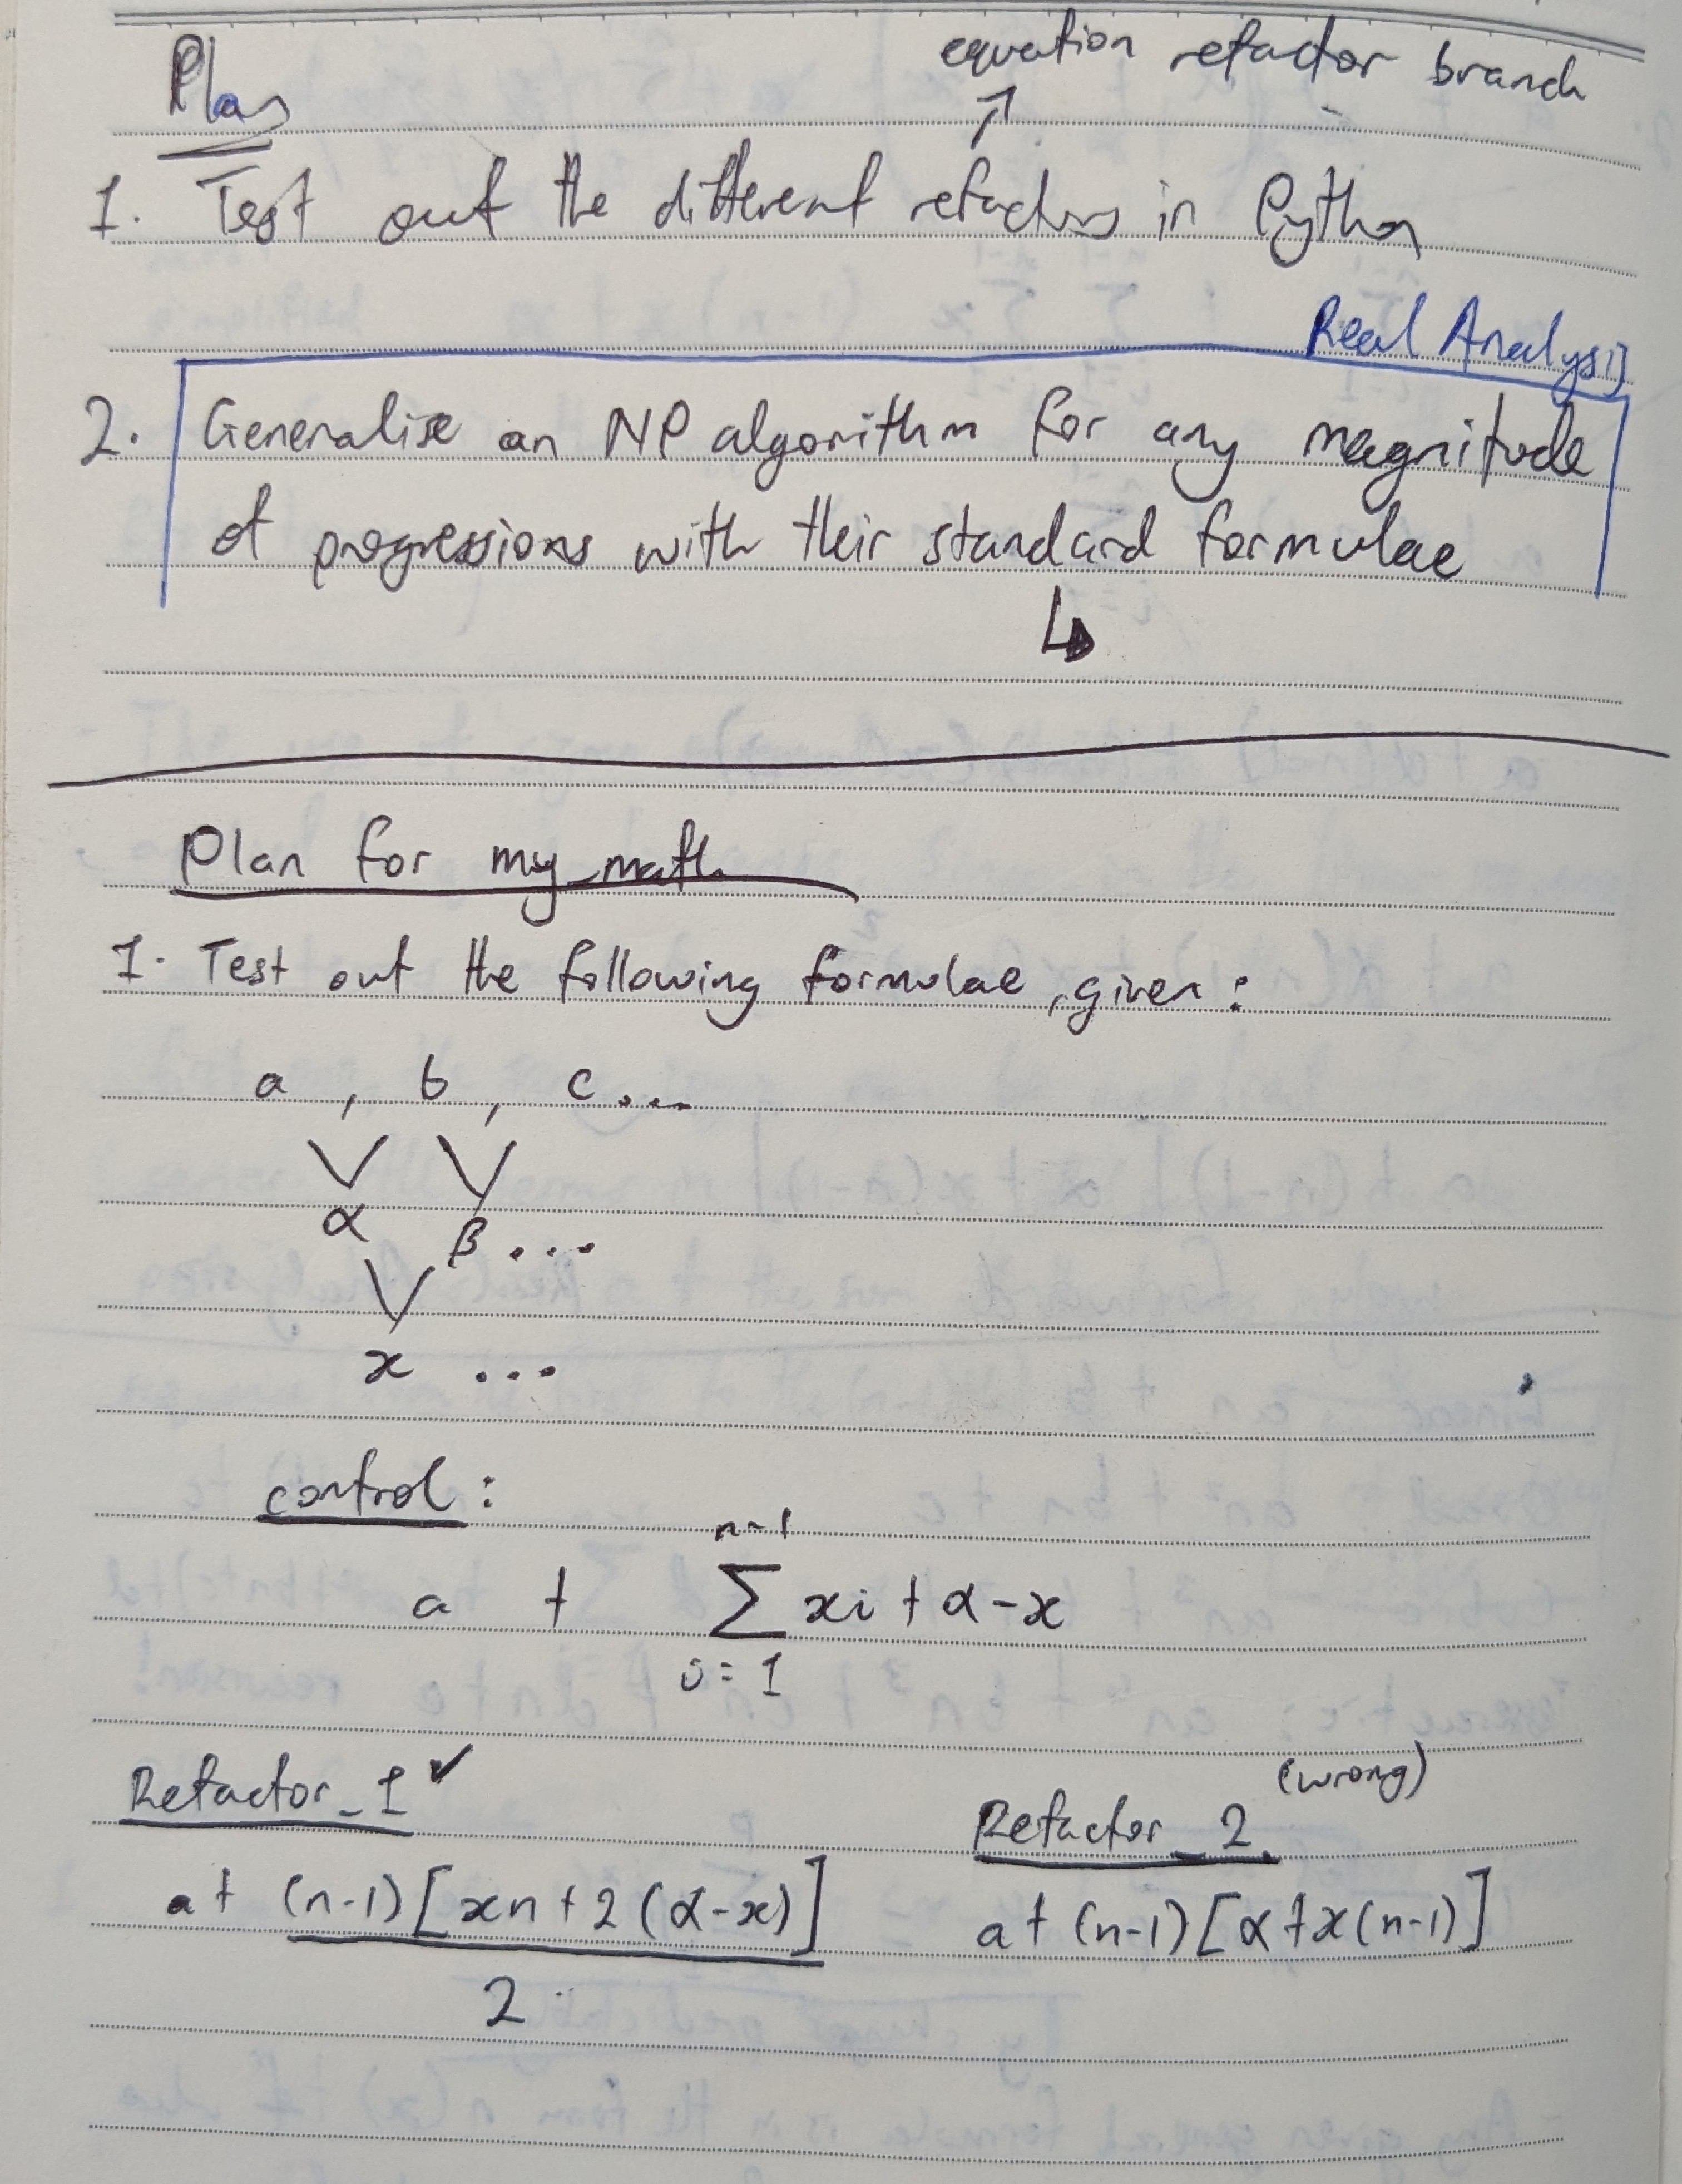 Plan
equation refactor branch
↗
1. Test out the different refactors in Python
Real Analysis
2. Generalise an NP algorithm for any magnitude
of progressions with their standard formulae
↳
Plan for my_math
1. Test out the following formulae, given:
a , b , c ...
α β ...
x ...
control:
n-1
a + ∑ xi + α - x
i = 1
Refactor_1 ✓
a + (n-1)[xn + 2(α-x)]
2
(wrong)
Refactor_2
a + (n-1)[α + x(n-1)]